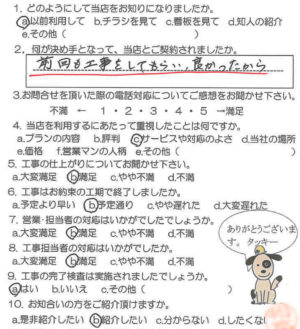 1. どのようにして当店をお知りになりましたか。
a.以前利用して b.チラシを見て c.看板を見て d.知人の紹介
e.その他(
2. 何が決め手となって、当店とご契約されましたか。
前回も工事をしてもらい、良かったから
3.お問合せを頂いた際の電話対応についてご感想をお聞かせ下さい。
不満 ← 1・2・3・4・5 →満足
4. 当店を利用するにあたって重視したことは何ですか。
a.プランの内容 b.評判 c.サービスや対応のよさ d.当社の場所
e.価格 f.営業マンの人柄 e.その他(
5. 工事の仕上がりについてお聞かせ下さい。
a.大変満足 b.満足 c.やや不満 d.不満
6. 工事はお約束の工期で終了しましたか。
a.予定より早い b.予定通り c.やや遅れた d.大変遅れた
7. 営業・担当者の対応はいかがでしたでしょうか。
a.大変満足 b.満足 c.やや不満 d.不満
8. 工事担当者の対応はいかがでしたか。
a.大変満足 b.満足 c.やや不満 d.不満
9. 工事の完了検査は実施されましたでしょうか。
a.はい b.いいえ c.その他(
10. お知合いの方をご紹介頂けますか。
a.是非紹介したい b.紹介したい c.分からない d.したくない
ありがとうございま
す。タッキー